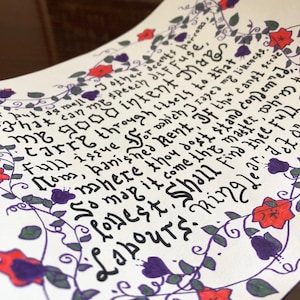 but as well I other
That can my speech defuse
my good intent may
carry through itself to that
full issue For which I razed my
Now, banished Kent if thou canst serve
where thou dost stand condemned
So may it come thy master whom
lovest Shall Find thee full
Labours King L